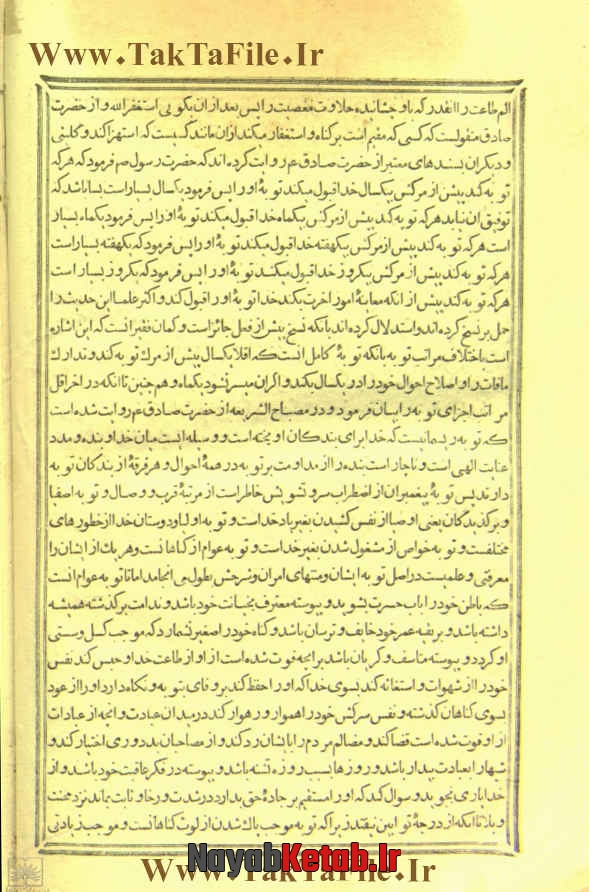 Www.TakTaFile.Ir
الم طاعت را انقدر که باو چشانده حلاوت معصیت را پس بعد ازان بگویی استغفر الله و از حضرت
صادق منقولست که کسی که مقیم است بر گناه و استغفار میکند ازان مانند کسیست که استهزا کند و کلینی
و دیگران بسندهای معتبر از حضرت صادق ع روایت کرده اند که حضرت رسول ص فرمود که هر که
توبه کند پیش از مرگش بیکسال خدا قبول میکند توبۀ او را پس فرمود یکسال بسیار است بسا باشد که
توفیق ان نیابد هر که توبه کند پیش از مرگش بیکماه خدا قبول میکند توبۀ او را پس فرمود یکماه بسیار
است هر که توبه کند پیش از مرگش بیکهفته خدا قبول میکند توبۀ او را پس فرمود که یکهفته بسیار است
هر که توبه کند پیش از مرگش بیکروز خدا قبول میکند توبۀ او را پس فرمود که یکروز بسیار است
هر که توبه کند پیش از انکه معاینۀ امور اخرت بکند خدا توبۀ او را قبول کند و اکثر علما این حدیث را
حمل بر نسخ کرده اند و استدلال کرده اند بانکه نسخ پیش از فعل جائز است و گمان فقیر انست که این اشاره
است باختلاف مراتب توبه بانکه توبۀ کامل انست که اقلا یکسال پیش از مرگ توبه کند و تدارک
مافات را و اصلاح احوال خود را در یکسال بکند و اگر این میسر نشود یکماه و همچنین تا انکه در اخر اقل
مراتب اجزای توبه را بیان فرمود و در مصباح الشریعه از حضرت صادق ع روایت شده است
که توبه ریسمانیست که خدا برای بندگان اویخته است و وسیله ایست میان خدا و بنده و مدد
عنایت الهی است و ناچار است بنده را از مداومت بر توبه در همۀ احوال و هر فرقۀ از بندگان توبه
دارند پس توبۀ پیغمبران از اضطراب سر و تشویش خاطر است از مرتبۀ قرب و وصال و توبه اصفیا
و برگزیدگان یعنی اوصیا از نفس کشیدن بغیر یاد خداست و توبه اولیا و دوستان خدا از خطورهای
مختلفست و توبه خواص از مشغول شدن بغیر خداست و توبه عوام از گناهانست و هر یک از ایشان را
معرفتی و علمیست در اصل توبه ایشان و منتهای امر ان و شرحش بطول می انجامد اما تا توبه عوام انست
که باطن خود را باب حسرت بشوید و پیوسته معترف بخیانت خود باشد و ندامت بر گذشته همیشه
داشته باشد و بر بقیه عمر خود خایف و ترسان باشد و گناه خود را صغیر نشمارد که موجب کسل و سستی
او گردد و پیوسته متاسف و گریان باشد بر انچه فوت شده است از او از طاعت خدا و حبس کند نفس
خود را از شهوات و استغاثه کند بسوی خدا که او را حفظ کند بر وفای توبه و نگاه دارد او را از عود
بسوی گناهان گذشته و نفس سرکش خود را هموار و رهوار کند در میدان عبادت و انچه از عبادات
از او فوت شده است قضا کند و مظالم مردم را بایشان رد کند و از مصاحبان بد دوری اختیار کند و
شبها را بعبادت بیدار باشد و روزها بسبب روزه تشنه باشد و پیوسته در فکر عاقبت خود باشد و از
خدا یاری بجوید و سوال کند که او را مستقیم بر جادۀ حق بدارد در شدت و رخا و ثابت بماند نزد محنت
و بلا تا انکه از درجۀ توابین نیفتد زیرا که توبه موجب پاک شدن از لوث گناهانست و موجب زیادتی
Www.TakTaFile.Ir
NayabKetab.Ir